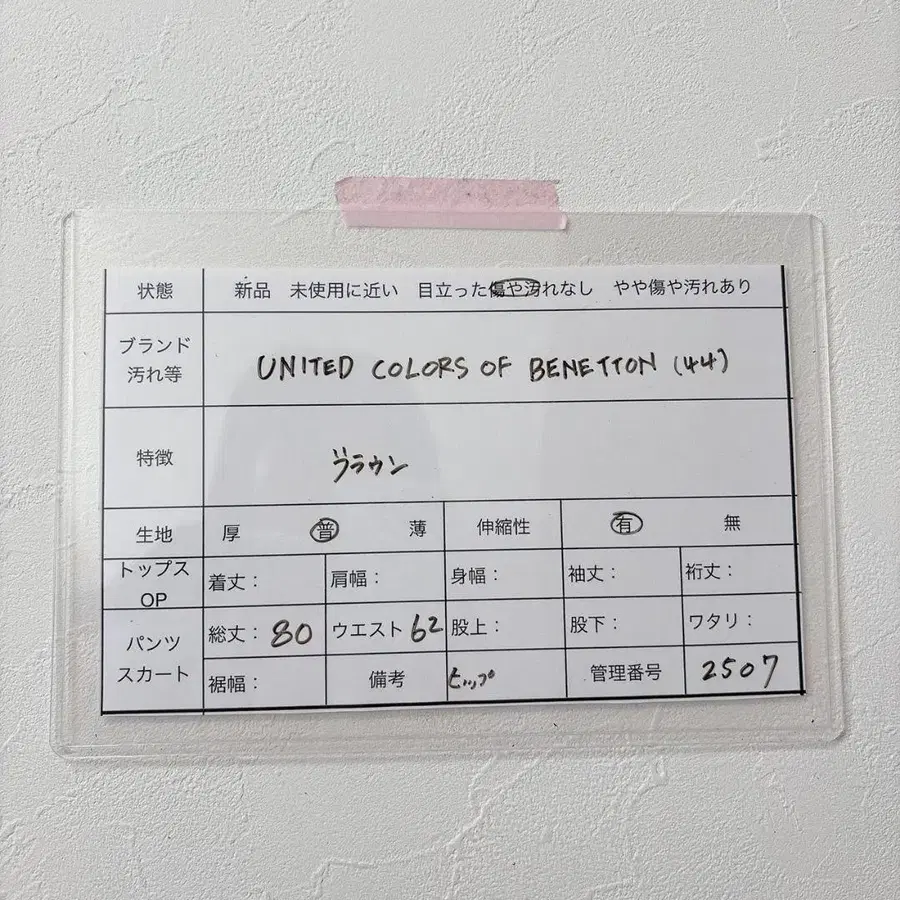 状態 新品 未使用に近い 目立った傷や汚れなし やや傷や汚れあり
ブランド
汚れ等
UNITED COLORS OF BENETTON (44)
特徴 ブラウン
生地 厚 普 薄 伸縮性 有 無
トップス
OP
着丈: 肩幅: 身幅: 袖丈: 裄丈:
パンツ
スカート
総丈: 80 ウエスト 62 股上: 股下: ワタリ:
裾幅: 備考 ヒップ 管理番号 2507